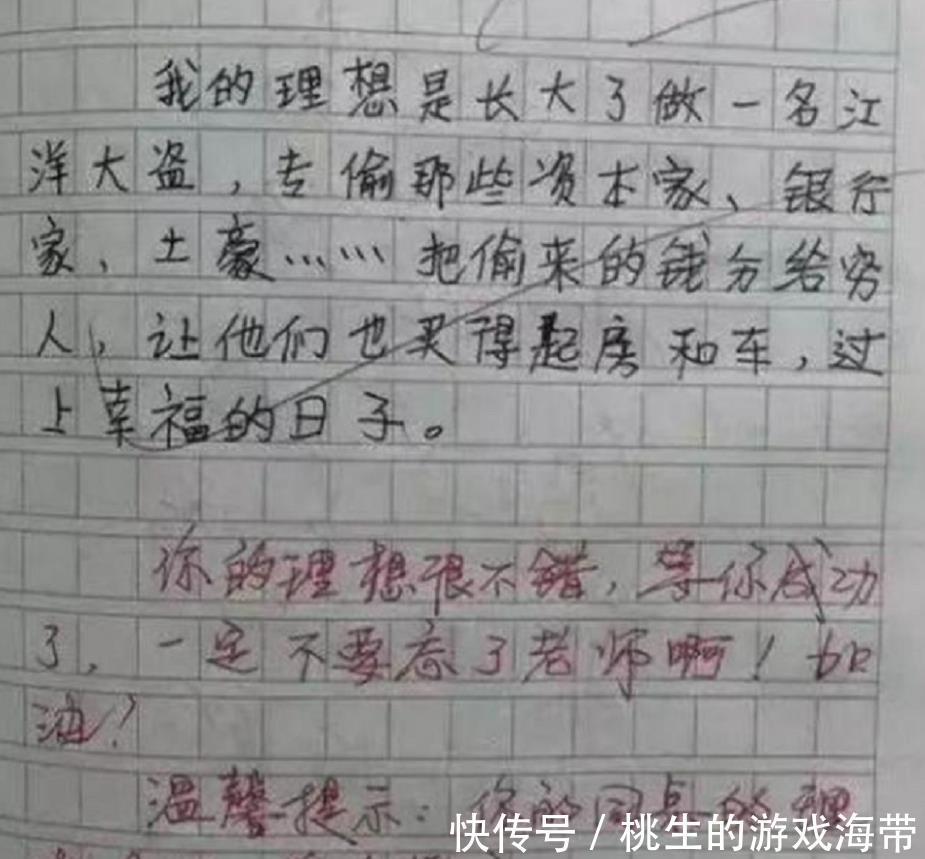 我的理想是长大了做一名江
洋大盗，专偷那些资本家、银行
家、土豪……把偷来的钱分给穷
人，让他们也买得起房和车，过
上幸福的日子。
你的理想很不错，等你成功
了，一定不要忘了老师啊！加
油！
温馨提示：你的同桌的理
快传号 / 桃生的游戏海带